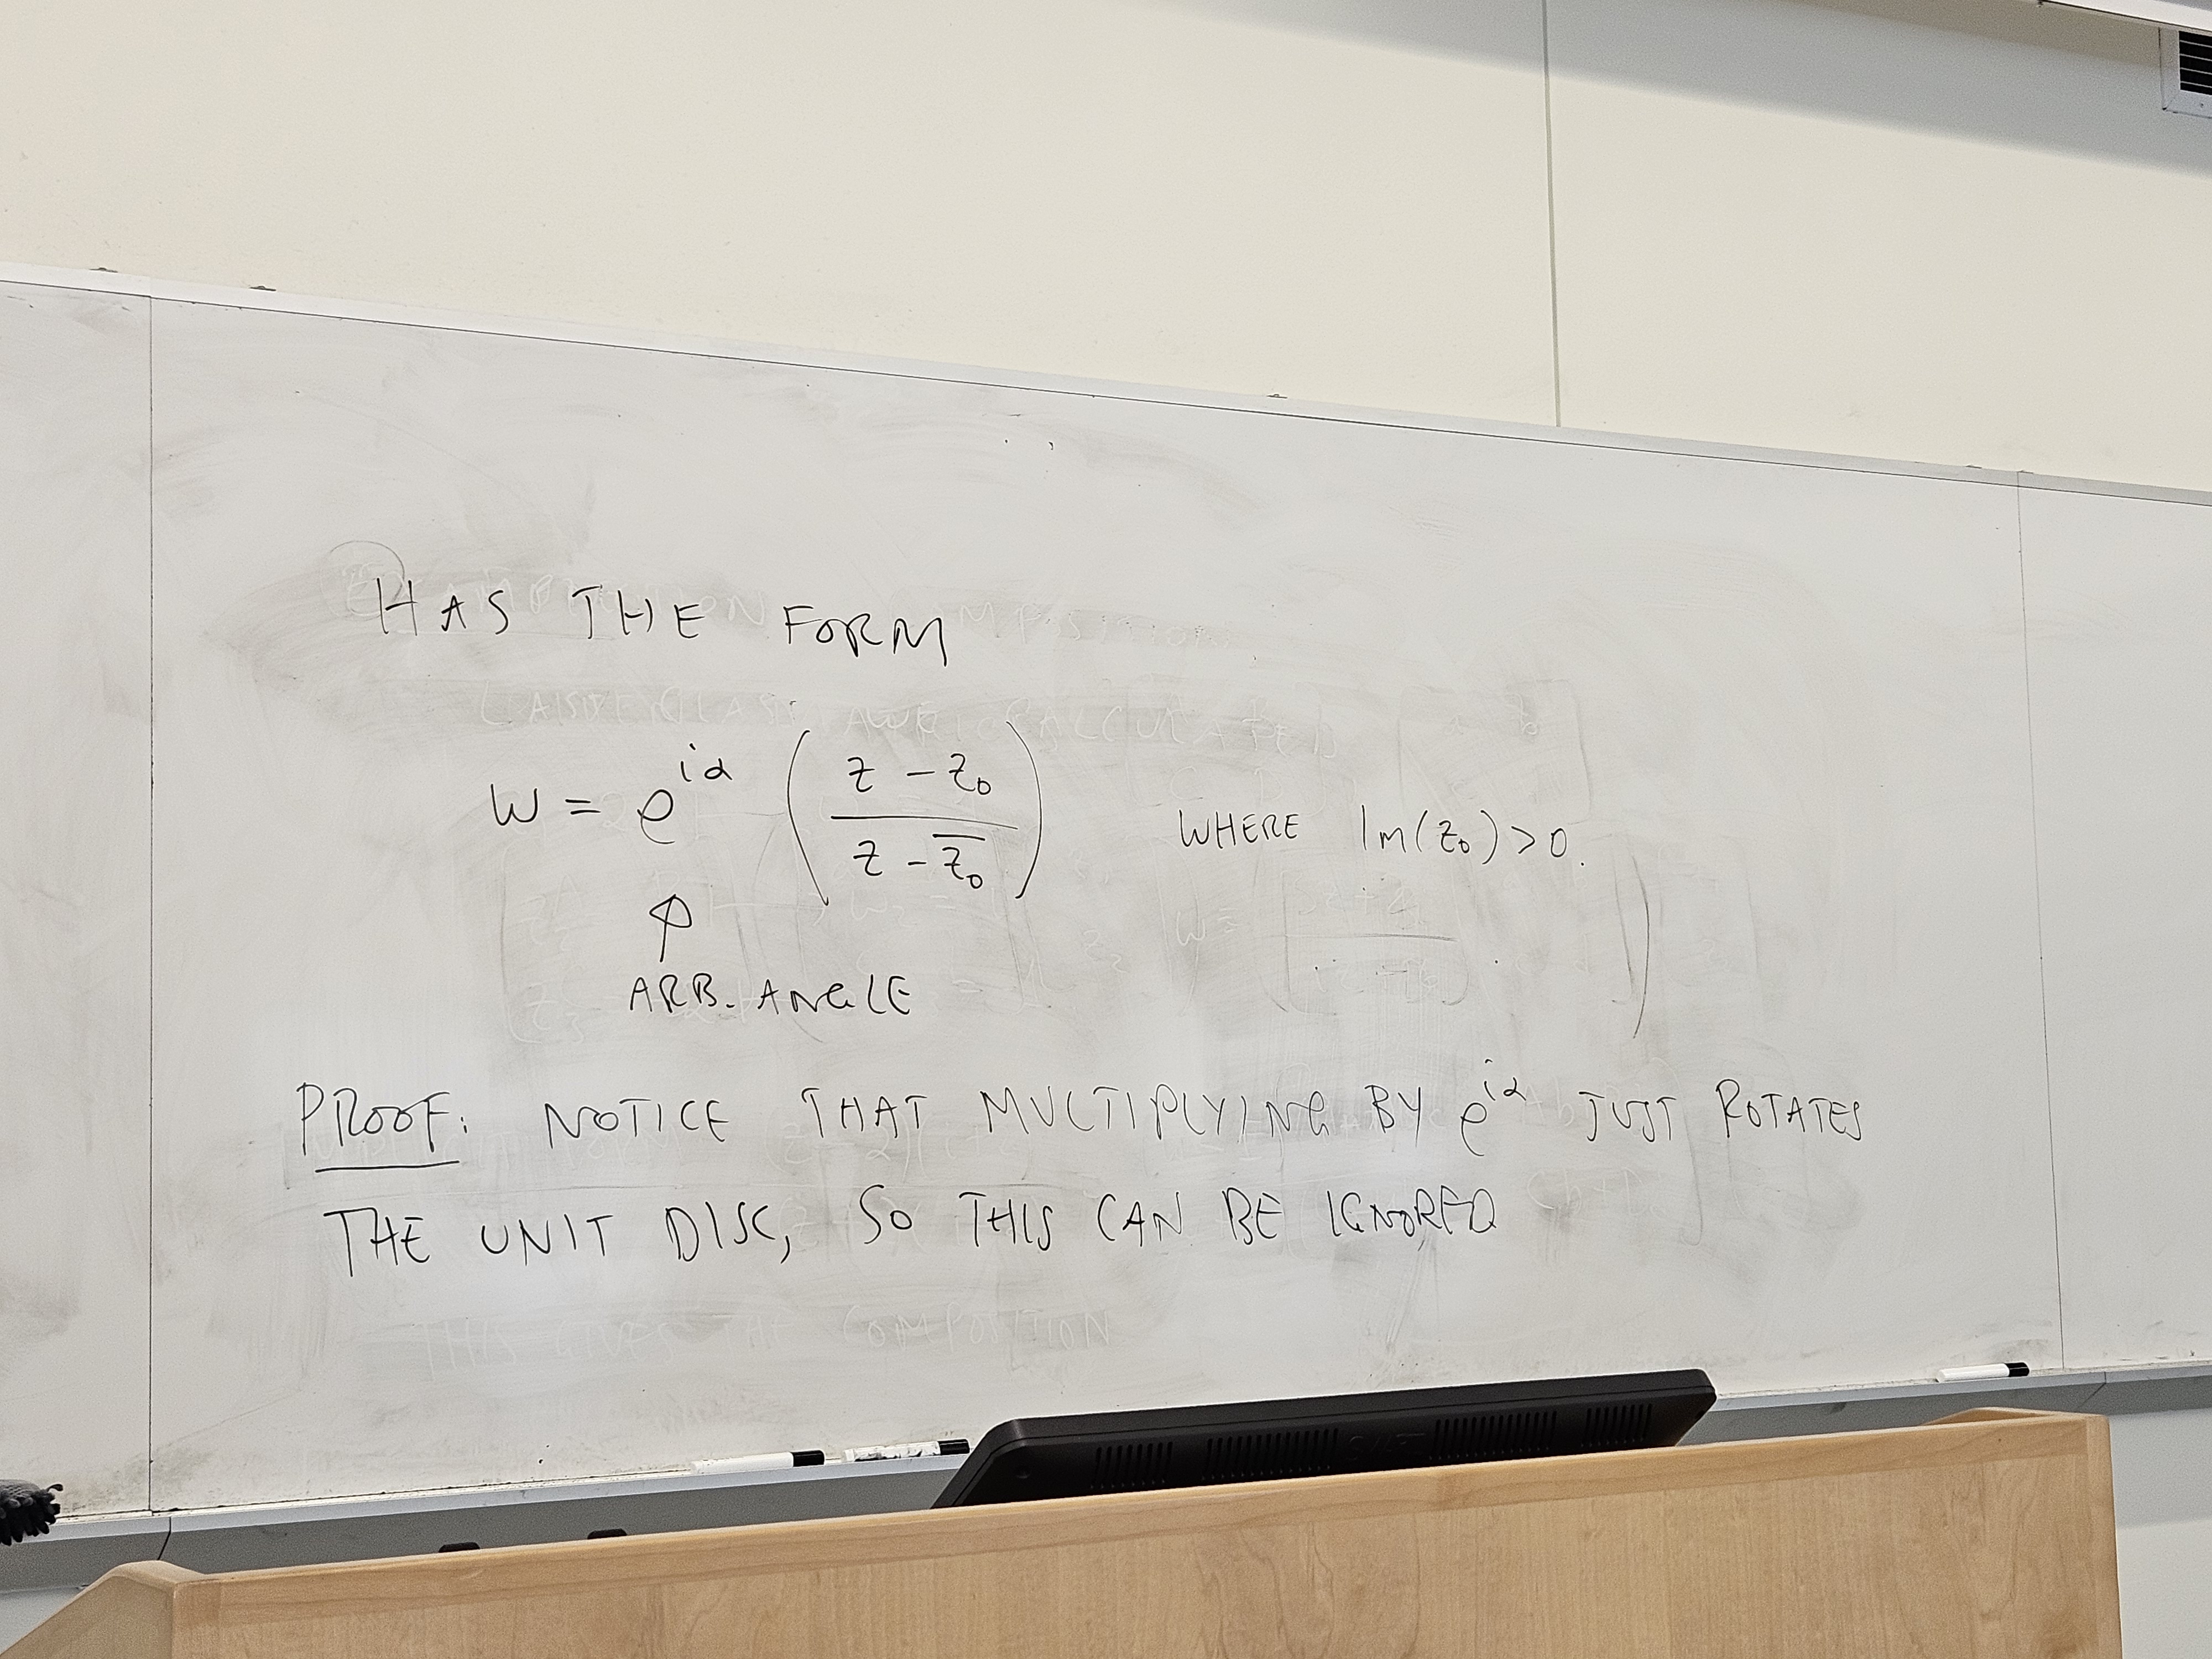 HAS THE FORM
w = e^{iα} ( (z - z₀) / (z - z̄₀) ) WHERE Im(z₀) > 0.
↑
ARB. ANGLE
PROOF: NOTICE THAT MULTIPLYING BY e^{iα} JUST ROTATES
THE UNIT DISC, SO THIS CAN BE IGNORED
THIS GIVES THE COMPOSITION